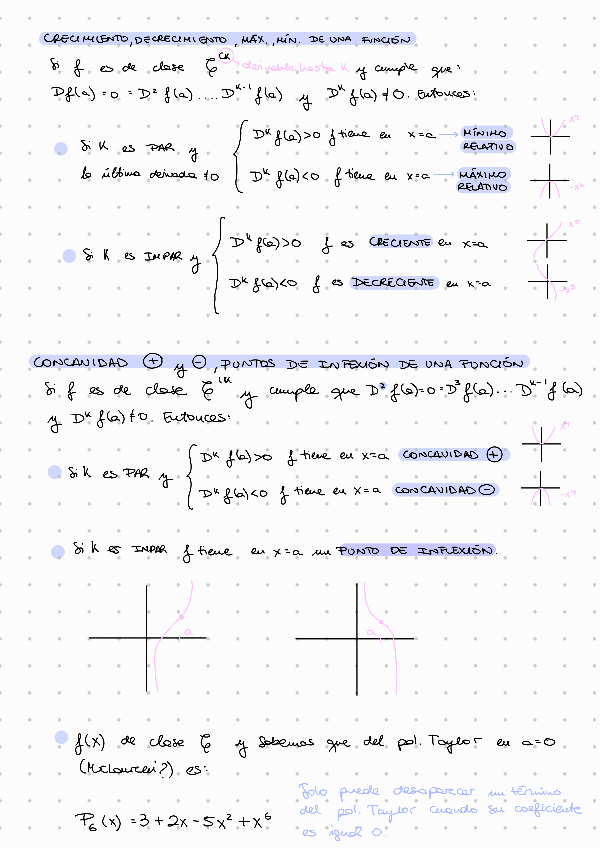 CRECIMIENTO, DECRECIMIENTO, MÁX., MÍN. DE UNA FUNCIÓN
Si f es de clase C^(K → derivable hasta K y cumple que:
Df(a) = 0 = D² f(a) .... D^(k-1) f(a) y D^k f(a) ≠ 0. Entonces:
Si K es PAR y
la última derivada ≠0
D^k f(a) > 0 f tiene en x=a → MÍNIMO RELATIVO
x⁴
D^k f(a) < 0 f tiene en x=a → MÁXIMO RELATIVO
Si K es IMPAR y
D^k f(a) > 0 f es CRECIENTE en x=a
D^k f(a) < 0 f es DECRECIENTE en x=a
CONCAVIDAD ⊕ y ⊖, PUNTOS DE INFEXIÓN DE UNA FUNCIÓN
Si f es de clase C^(K y cumple que D² f(a) = 0 = D³ f(a) ... D^(k-1) f(a)
y D^k f(a) ≠ 0. Entonces:
Si K es PAR y
D^k f(a) > 0 f tiene en x=a CONCAVIDAD ⊕
x⁴
D^k f(a) < 0 f tiene en x=a CONCAVIDAD ⊖
-x⁴
Si K es IMPAR f tiene en x=a un PUNTO DE INFLEXIÓN.
a
a
f(x) de clase C y sabemos que del pol. Taylor en a=0
es:
P₆(x) = 3 + 2x - 5x² + x⁶
Solo puede desaparecer un término
del pol. Taylor cuando su coeficiente
es igual 0.